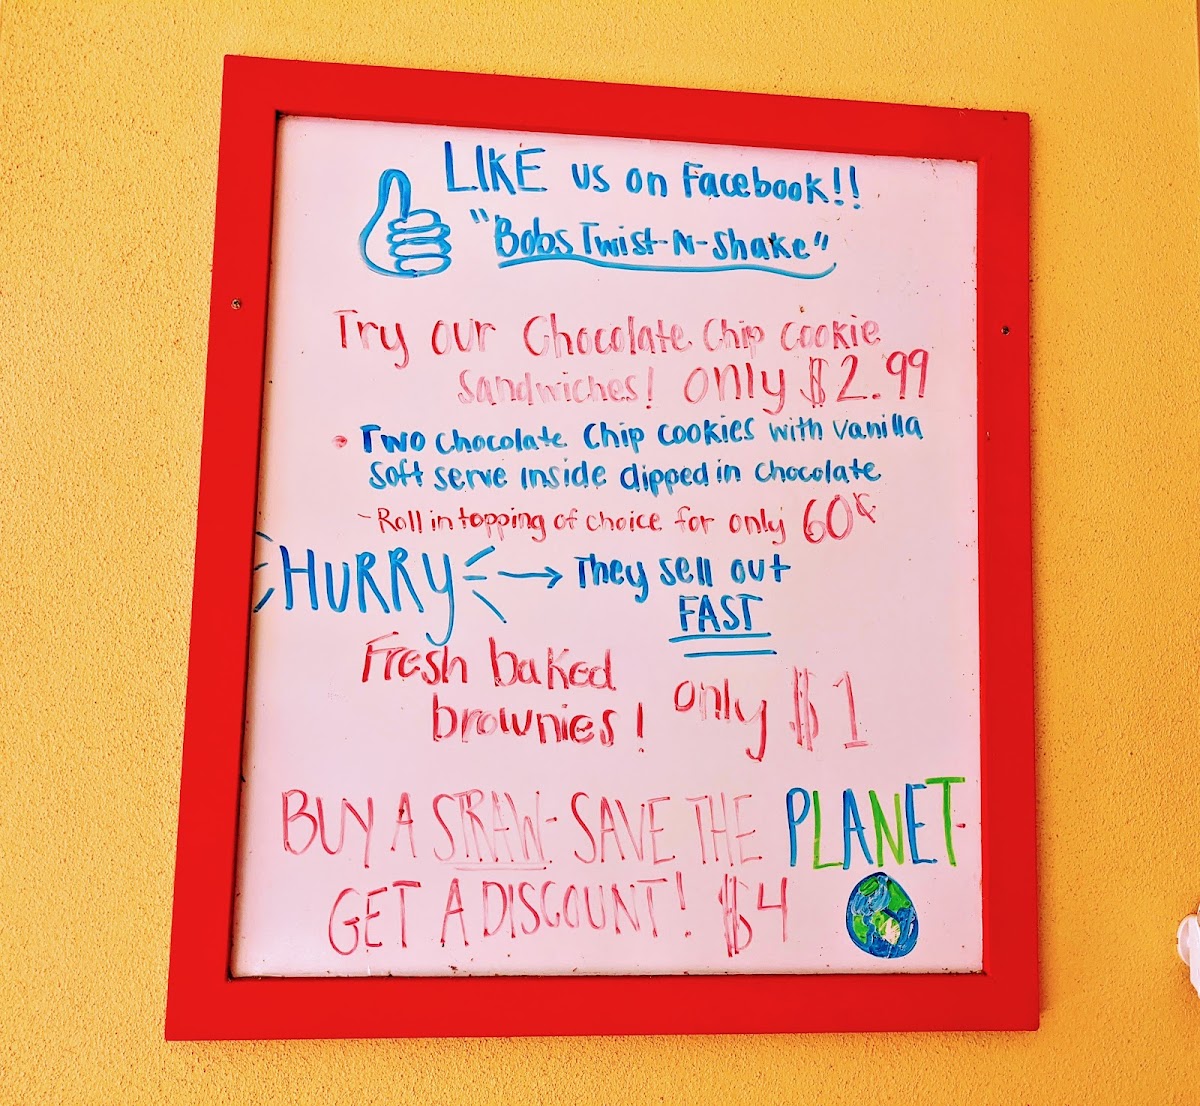 LIKE us on Facebook!!
"Bobs Twist-N-Shake"
Try our Chocolate Chip Cookie
Sandwiches! only $2.99
• Two chocolate chip cookies with vanilla
soft serve inside dipped in chocolate
- Roll in topping of choice for only 60¢
HURRY → They sell out
FAST
Fresh baked
brownies! only $1
BUY A STRAW - SAVE THE PLANET -
GET A DISCOUNT! $4